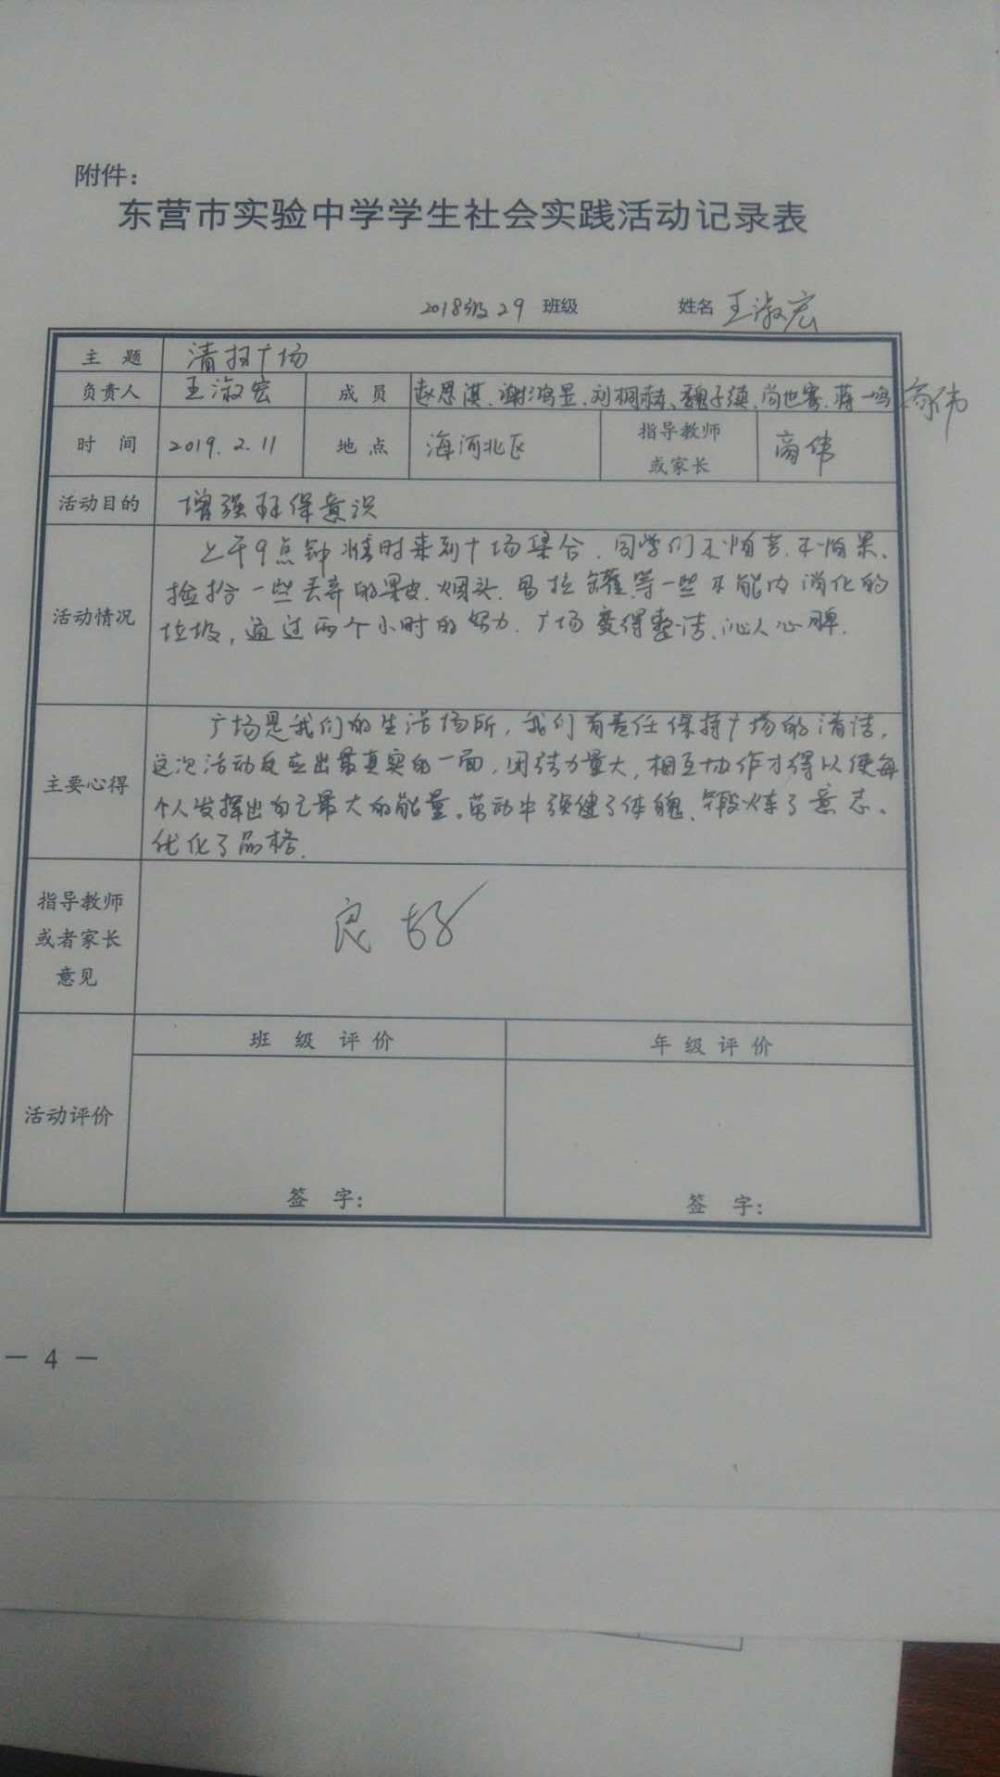 附件：
东营市实验中学学生社会实践活动记录表
2018级29 班级 姓名 王淑宏
主 题 清扫广场
负责人 王淑宏 成 员 赵思淇、谢鸿昱、刘桐赫、魏子健、尚世骞、蒋一鸣 商伟
时 间 2019.2.11 地 点 海河北区 指导教师 商伟
或家长
活动目的 增强环保意识
上午9点钟准时来到广场集合，同学们不怕苦、不怕累、
捡拾一些丢弃的果皮、烟头、易拉罐等一些不能内消化的
活动情况
垃圾，通过两个小时的努力，广场变得整洁、沁人心脾.
广场是我们的生活场所，我们有责任保持广场的清洁，
这次活动反应出最真实的一面，团结力量大，相互协作才得以使每
主要心得
个人发挥出自己最大的能量。劳动中强健了体魄，锻炼了意志。
优化了品格.
指导教师
或者家长 良好
意见
班 级 评 价 年 级 评 价
活动评价
签 字： 签 字：
— 4 —